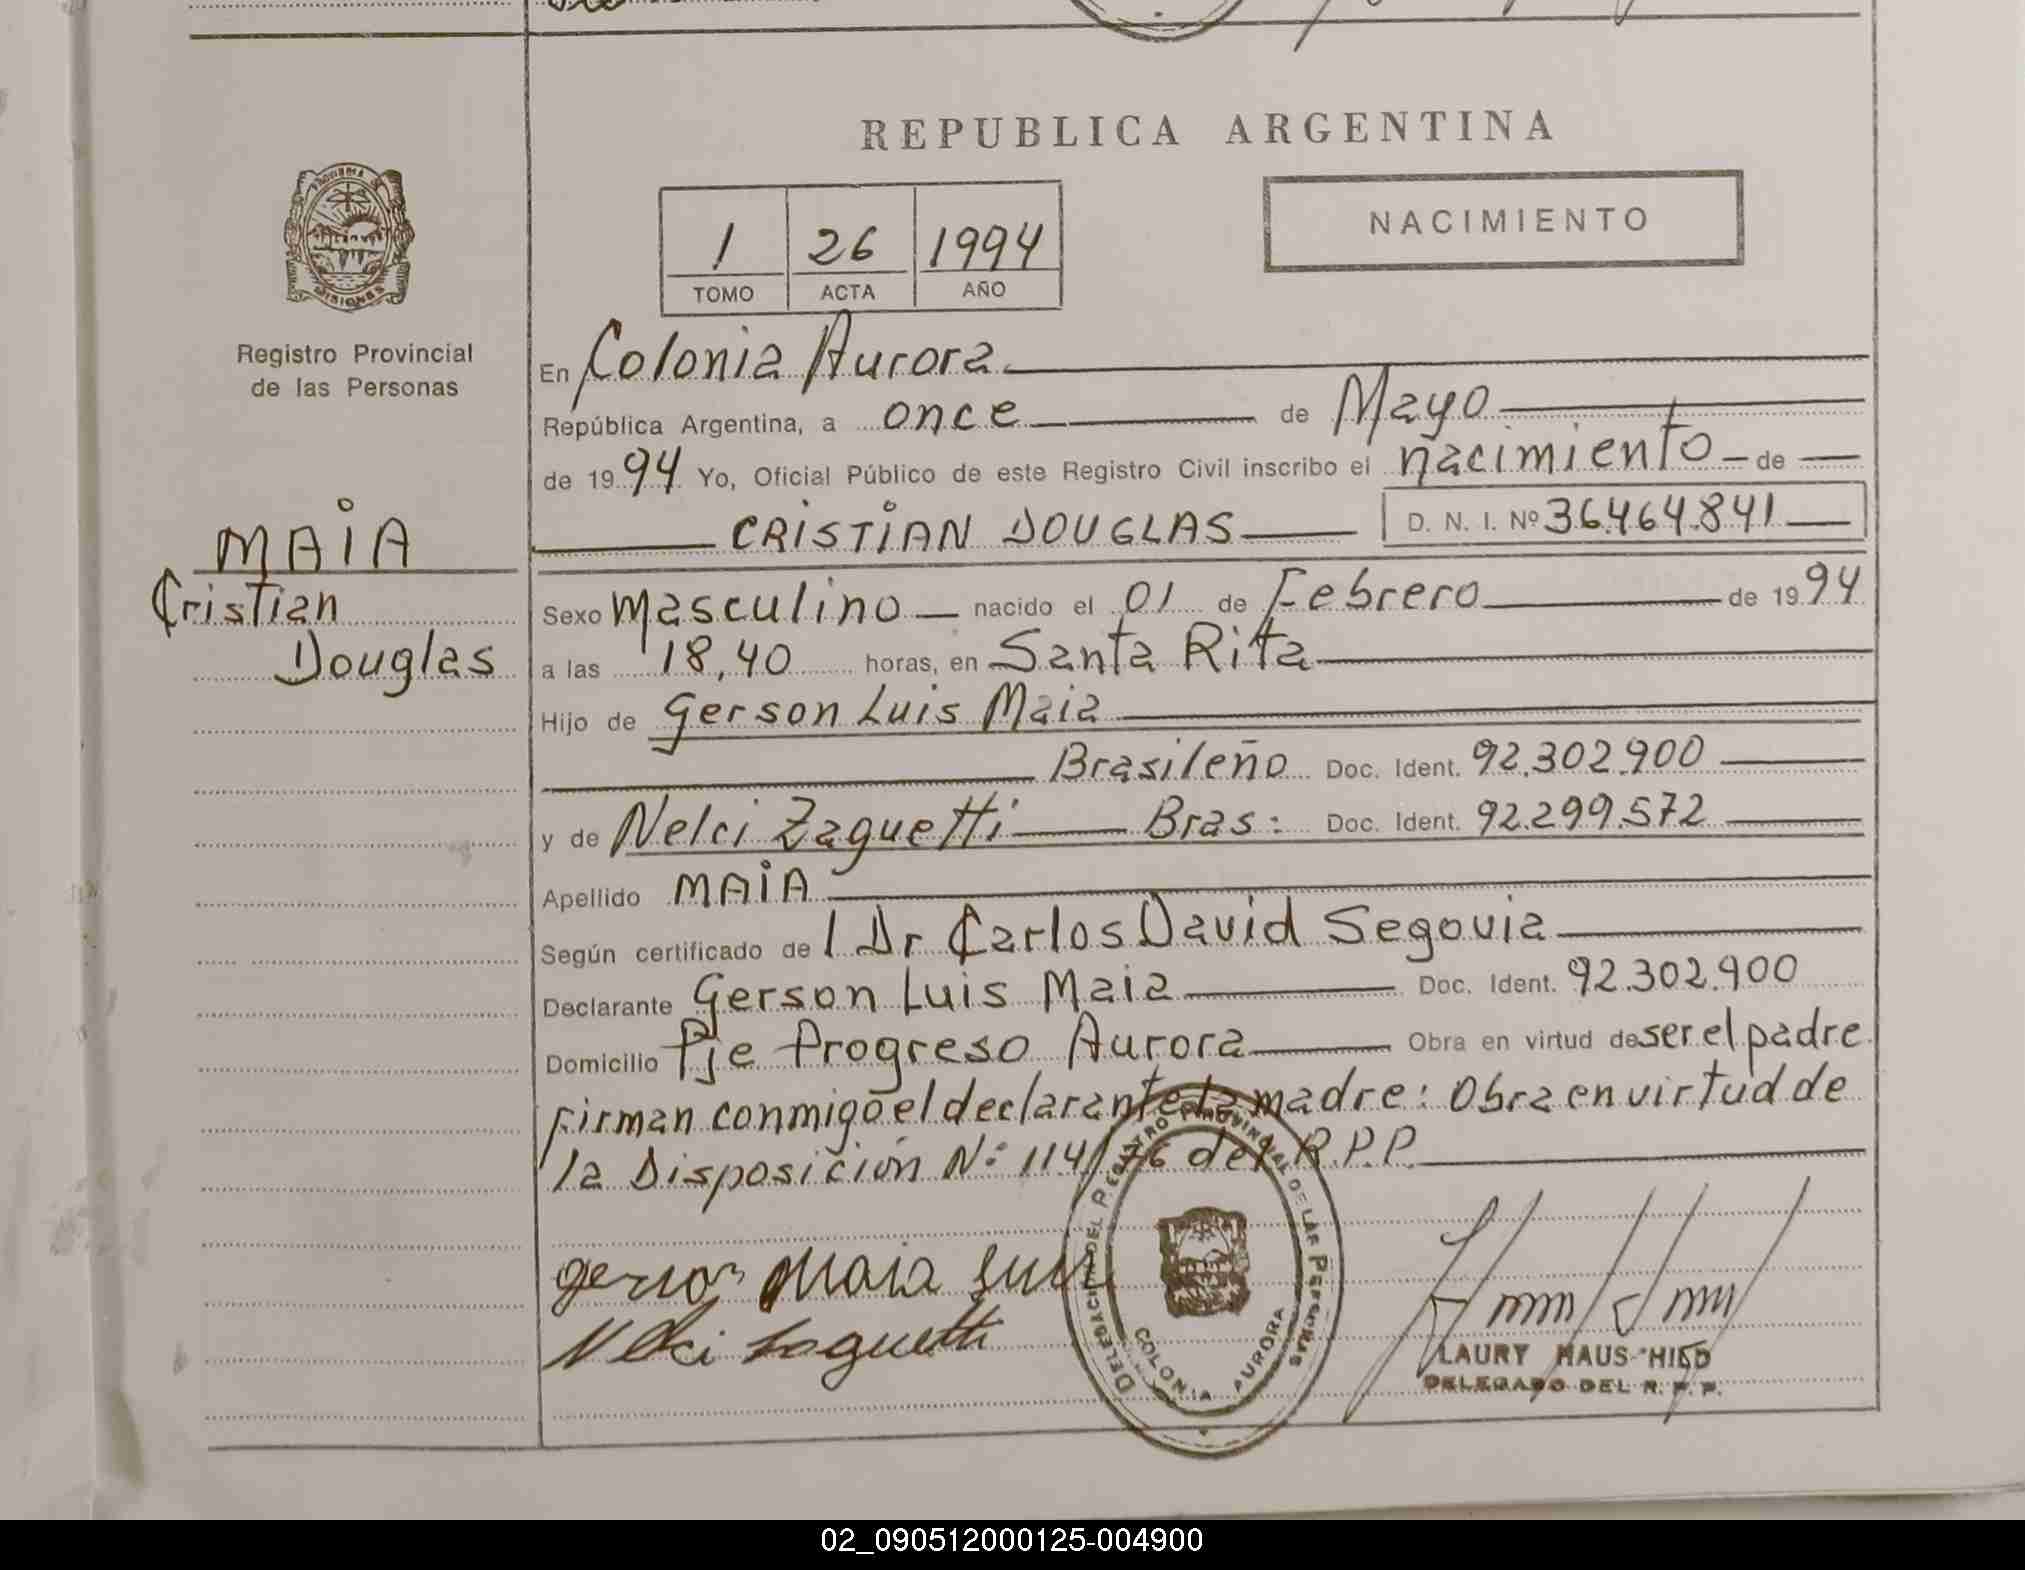 REPUBLICA ARGENTINA
NACIMIENTO
1 26 1994
TOMO ACTA AÑO
PROVINCIA DE MISIONES
Registro Provincial
de las Personas
MAIA
Cristian
Douglas
En Colonia Aurora
República Argentina, a once de Mayo
de 1994 Yo, Oficial Público de este Registro Civil inscribo el nacimiento de
CRISTIAN DOUGLAS D. N. I. Nº 36.464.841
Sexo Masculino nacido el 01 de Febrero de 1994
a las 18,40 horas, en Santa Rita
Hijo de Gerson Luis Maia
Brasileño Doc. Ident. 92.302.900
y de Nelci Zaguetti Bras: Doc. Ident. 92.299.572
Apellido MAIA
Según certificado de l Dr Carlos David Segovia
Declarante Gerson Luis Maia Doc. Ident. 92.302.900
Domicilio Pje Progreso Aurora Obra en virtud de ser el padre
Firman conmigo el declarante la madre: Obra en virtud de
la Disposición N: 114/76 del R.P.P.
DELEGACION DEL REGISTRO PROVINCIAL DE LAS PERSONAS
COLONIA AURORA
gerson Maia Luis
Nelci Zaguetti
LAURY HAUS HIED
DELEGADO DEL R. P. P.
02_090512000125-004900